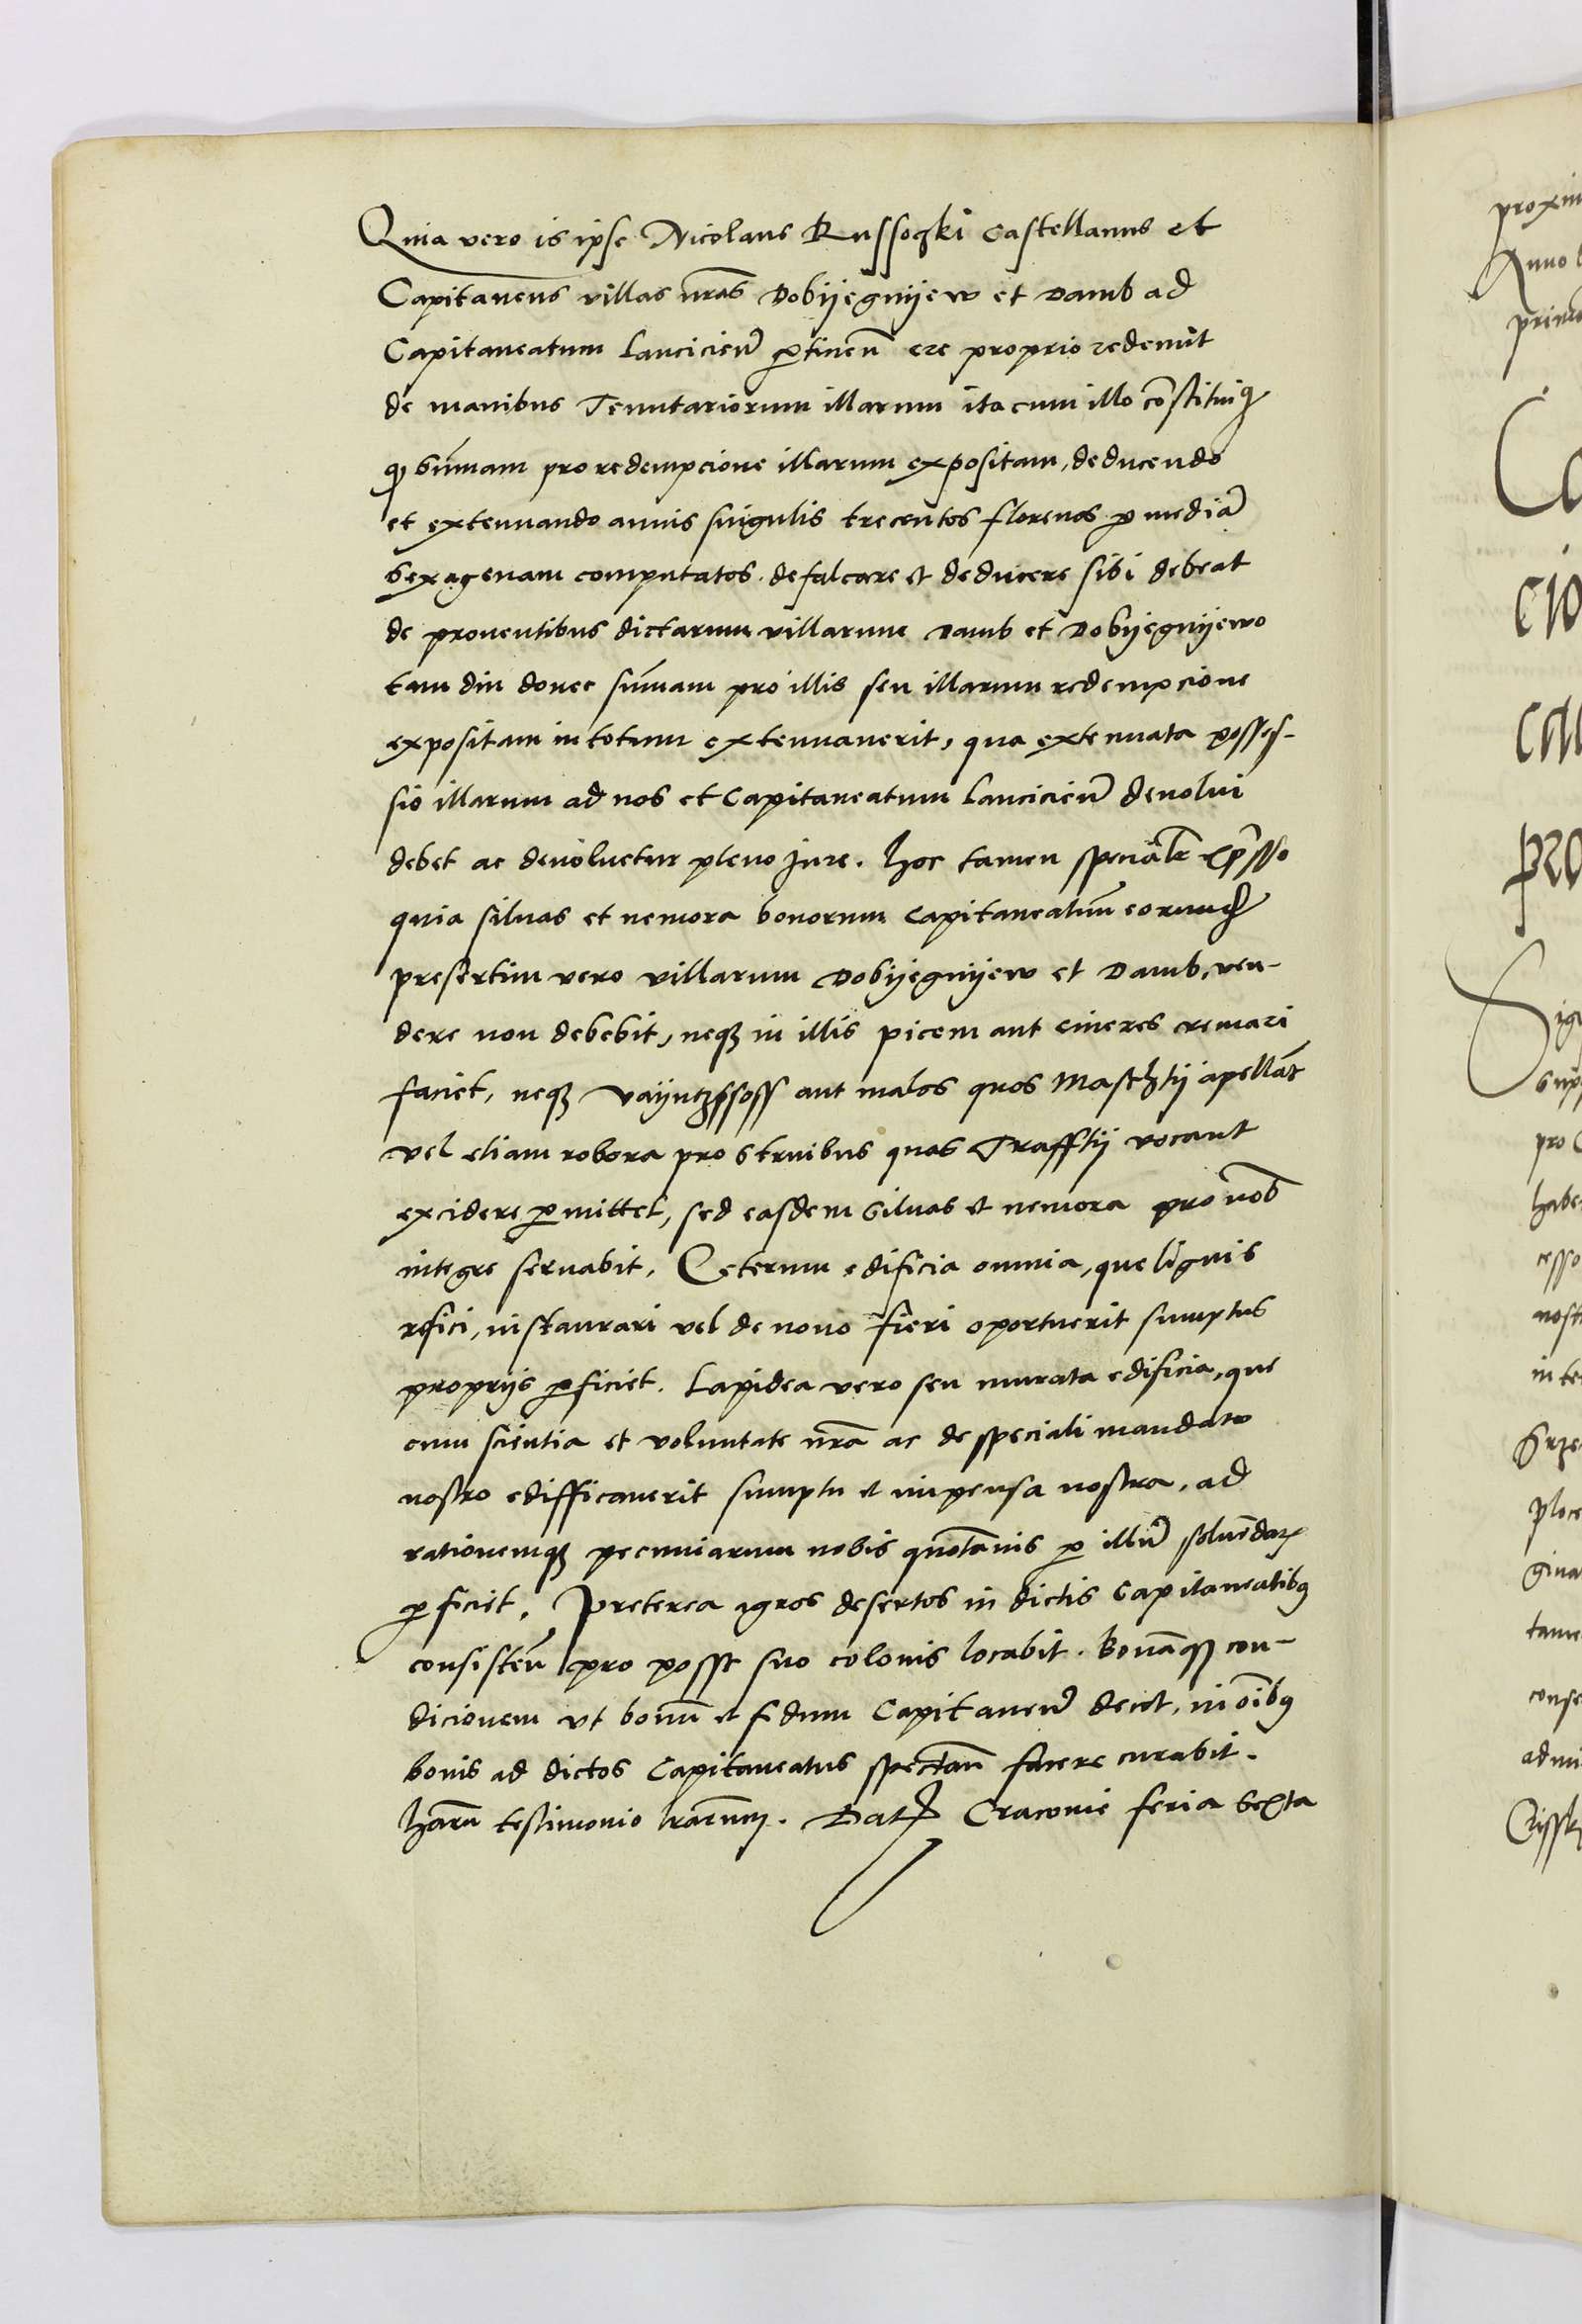 Quia vero is ipse Nicolaus Russoczki Castellanus et
Capitaneus villas nr̃as Dobijegnijew et Damb ad
Capitaneatum Lanciciẽn ꝑtineñ ere proprio redemit
de manibus Tenutariorum illarum ita cum illo cõstituimꝰ
ꝙ sum̃am pro redempcione illarum expositam, deducendo
et extenuando annis singulis trecentos florenos ꝑ mediã
sexagenam computatos. defalcare et deducere sibi debeat
de proventibus dictarum villarum Damb et Dobijegnijewo
tam diu donec sum̃am pro illis seu illarum redempcione
expositam in totum extenuaverit, qua extenuata posses-
sio illarum ad nos et Capitaneatum Lanciciẽn devolvi
debet ac devolvetur pleno jure. Hoc tamen spetialr̃ exp̃sso
quia silvas et nemora bonorum Capitaneatuum̃ eorum
presertim vero villarum Dobijegnijew et Damb, ven-
dere non debebit, neqꝫ in illis picem aut cineres cremari
faciet, neqꝫ vayntzssoss aut malos quos Maschtij apellãt
vel etiam robora pro struibus quas Trafftij vocant
excidere ꝑmittet, sed easdem silvas et nemora pro nob̃
integre servabit. Ceterum edificia omnia, que lignis
refici, instaurari vel de novo fieri oportuerit sumptus
proprijs ꝑficiet. Lapidea vero seu murata edificia, que
cum scientia et voluntate nr̃a ac de speciali mandato
nostro edifficaverit sumptu et impensa nostra, ad
rationemqꝫ pecuniarum nobis quotãnis ꝑ illũ solvendaꝝ
ꝑficiet. Preterea agros desertos in dictis Capitaneatibꝰ
consisteñ pro posse suo colonis locabit. Bonãqꝫ con-
dicionem ut bonũ et fidum Capitaneũ decet, in oĩbꝰ
bonis ad dictos Capitaneatus spectañ facere curabit.
Harũ testimonio lr̃arum. Datꝭ Cracovie feria sexta